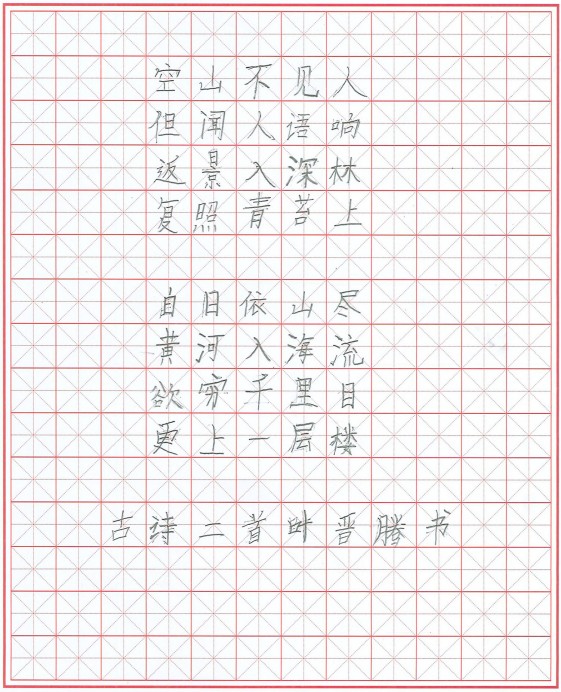 空山不见人
但闻人语响
返景入深林
复照青苔上
自日依山尽
黄河入海流
欲穷千里目
更上一层楼
古诗二首叶晋腾书